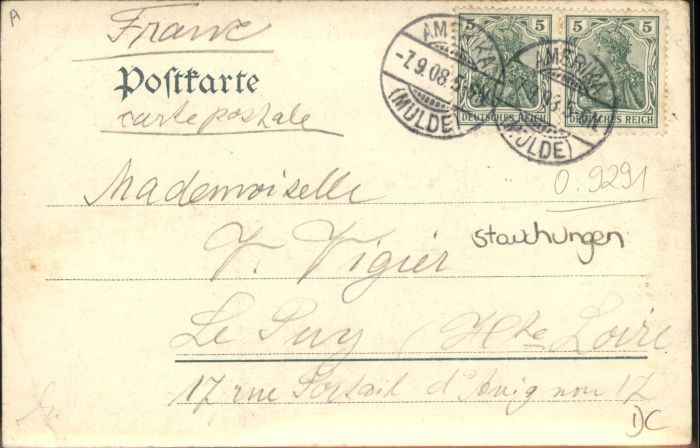 A
Franc
5 5 5 5
AMERIKA
-7.9.08.5-6N.
(MULDE)
AMERIKA
(MULDE)
DEUTSCHES REICH DEUTSCHES REICH
Postkarte
carte postale
Mademoiselle
0.9291
V. Vigier
stauchungen
Le Puy (Hte Loire
17 rue Portail d'Avignon 17
DC